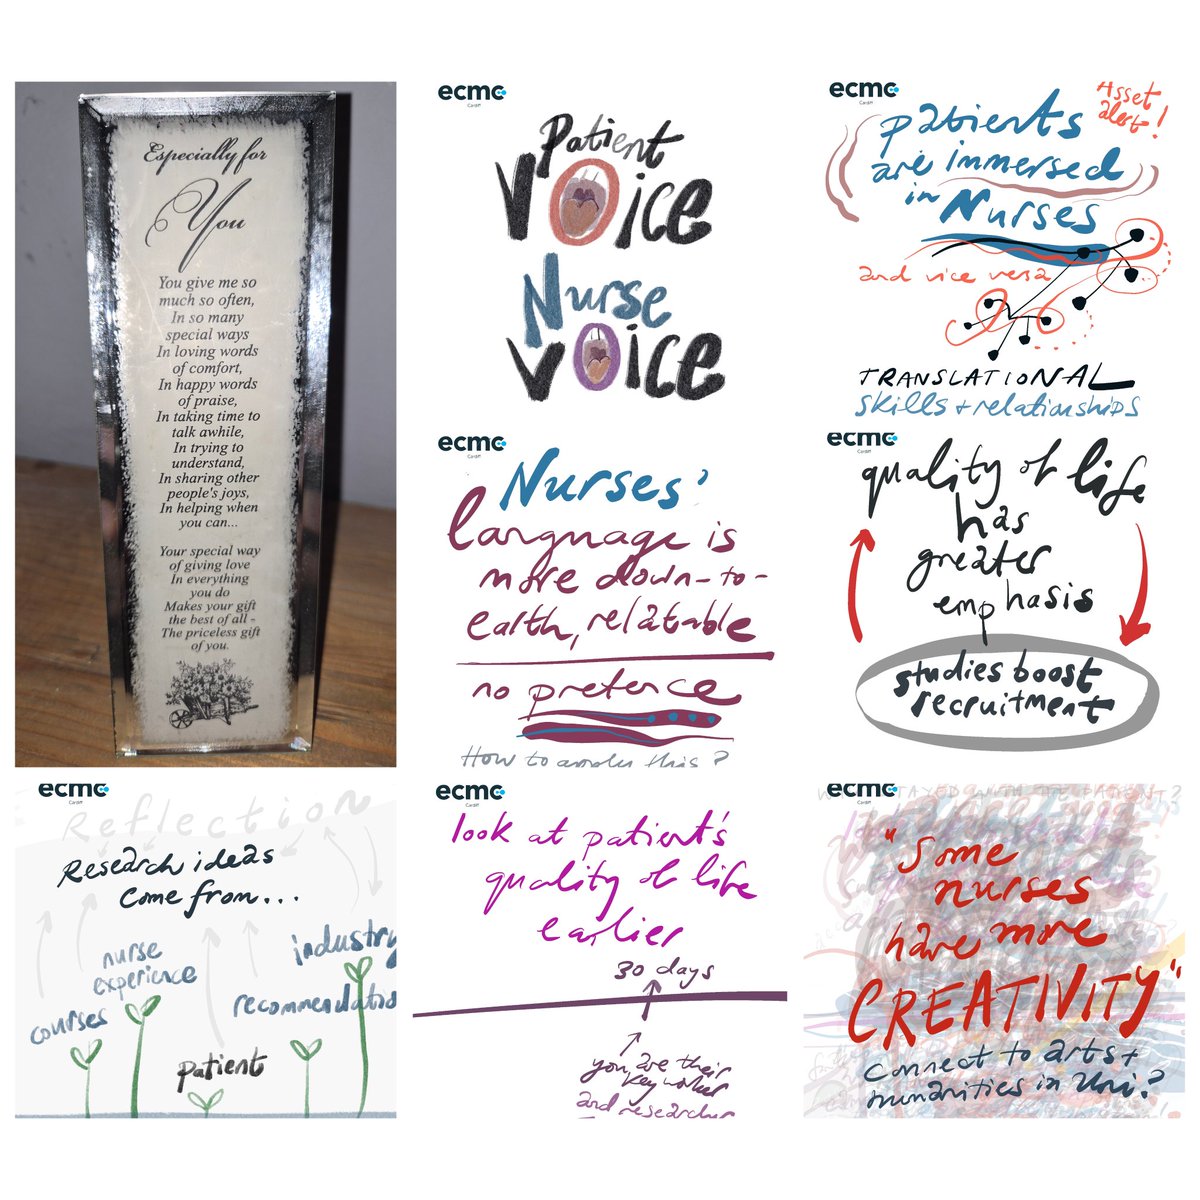 Especially for
You
You give me so
much so often,
In so many
special ways
In loving words
of comfort,
In happy words
of praise,
In taking time to
talk awhile,
In trying to
understand,
In sharing other
people's joys,
In helping when
you can...
Your special way
of giving love
In everything
you do
Makes your gift
the best of all -
The priceless gift
of you.
ecmc
Cardiff
Patient
VOICE
Nurse
VOICE
ecmc
Cardiff
Asset
alert!
patients
are immersed
in Nurses
and vice versa
TRANSLATIONAL
skills + relationships
ecmc
Cardiff
Nurses'
language is
more down-to-
earth, relatable
no pretence
How to
this?
ecmc
Cardiff
quality of life
has
greater
emphasis
studies boost
recruitment
ecmc
Cardiff
Reflection
Research ideas
come from...
industry
nurse
experience
recommendatio
courses
patient
ecmc
Cardiff
look at patient's
quality of life
earlier
30 days
you are their
key worker
and researcher
ecmc
Cardiff
"Some
nurses
have more
CREATIVITY"
Connect to arts +
humanities in Uni?